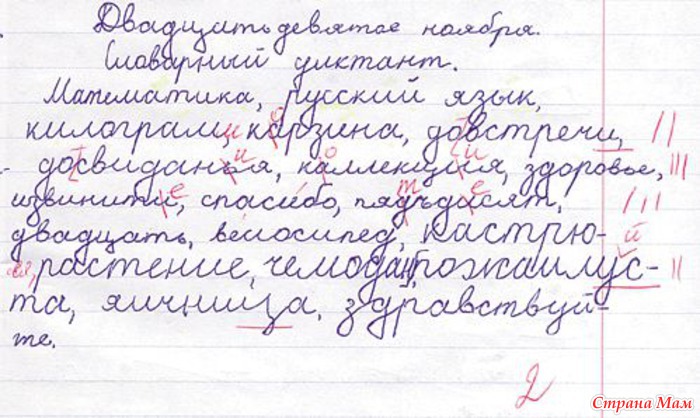 Двадцать девятое ноября.
Словарный диктант.
Математика, русский язык,
килограмм карзина, довстречи,
досвиданья, каллекция, здоровье,
извинити, спасибо, пядьдисят,
двадцать, велосипед, кастрю-
ля, растение, чемодан, пожаилус-
та, яичница, здравствуй-
те.
2
Страна Мам